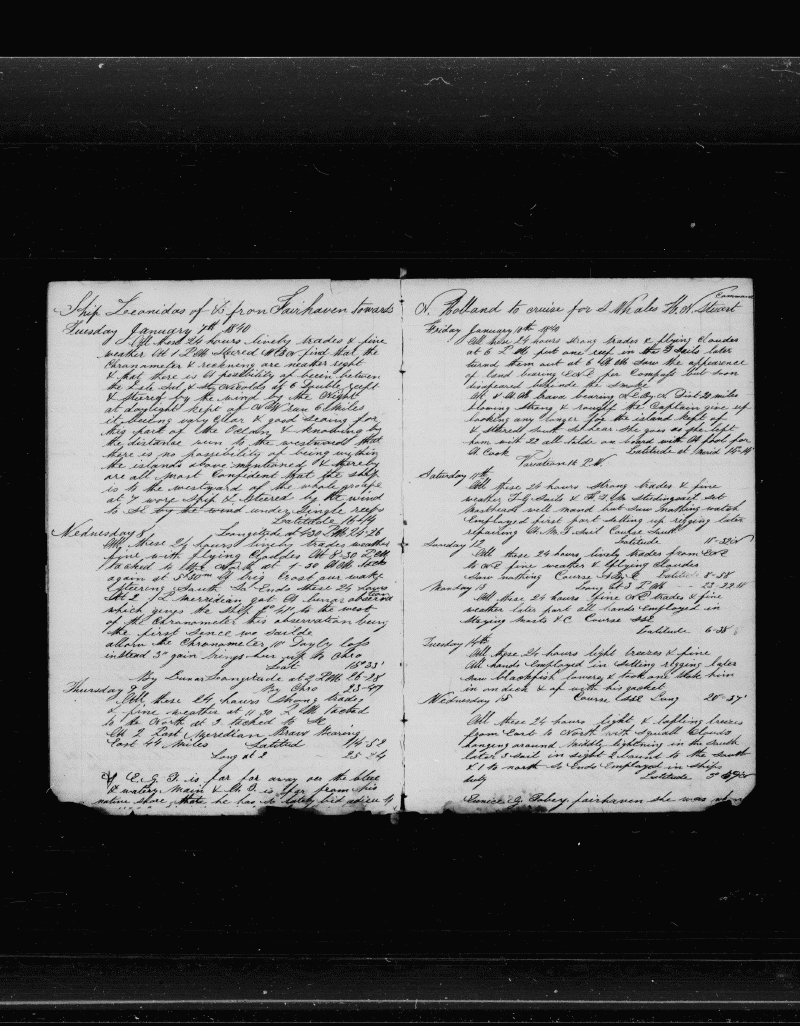 Ship Leonidas of & from Fairhaven towards
Tuesday January 7th 1840
All these 24 hours lively trades & fine
weather At 1 PM Steered find that the
Chronometer & reckning are neather right
& that there is A possibility of beein between
the Isle Sal & St Nicolas at 6 Double reeft
& steered by the wind by the Night
at daylight kept of NW ran 6 Miles
it beeing very Clar & good Seeing for
this part of the Ocean & knowing by
the distance run to the westward that
there is no possibility of being within
the islands above mentioned & thereby
are all most Confident that the ship
is to the westward of the whole groupe
at 7 wore Ship & Steered by the wind
to SE by the wind under Single reefs
Latitude 16 44
Wednesday 8 Longitude at 4 30 PM 24-26
All these 24 hours lively trades weather
fine with flying Clouds At 8-30 PM
tacked to the North at 1-30 AM tack
again at 5 30m A brig Crost our wake
Steering South So Ends these 24 hours
At 2 P Meredian got A lunar observation
which gives the Ship 2° 41' to the west
of the Chronometer this observation being
the first Sence we Saild
allow the Chronometer 11" Dayly loss
instead 3" gain brings her up to Chro
Latt 15° 33'
By Lunar Longitude at 2 PM 26-28
Thursday 9 By Chro 23-47
All these 24 hours Strong trades
& fine weather at 11 30 PM tacked
to the North at 3 tacked to SE
At 2 Past Meredian Brava Bearing
East 44 Miles Latitude 14-52
Long at 2 25-44
E. G. T. is far far away on the blue
& watery Main & is far from his
native shore, that he has so lately bid adieu
N. Holland to cruise for S Whales H. N. Stewart
Command
Friday January 10th 1840
All these 24 hours strong trades & flying Clouds
at 6 PM put one reef in the T Sails later
turned them out at 6 AM Saw the appearence
of land bearing ENE per Compass but soon
disapeared behinde the Smoke
At 8 AM brava bearing Dist 20 miles
blowing strong & rought the Captain give up
looking any longer for the island kept of
& Steered South So hear She goes as she left
hom with 22 all tolde on board with A fool for
A Cook Latitude at Merid
Variation
Saturday 11th
All these 24 hours Strong trades & fine
weather T G Sails & F T M Studingsail set
Mastheads well mand but Saw Nothing watch
Employed first part Setting up rigging later
repairing A M T Sail Course South
Latitude
Sunday 12
All these 24 hours lively trades from ENE
to NE fine weather & flying Clouds
Saw nothing Course Latitude 8-38
Monday 13 Long at 3 PM 23-22
All these 24 hours fine NE trades & fine
weather later part all hands Employed in
Staying Masts &C Course SSE
Latitude 6-38
Tuesday 14th
All these 24 hours light breezes & fine
All hands Employed in Setting rigging later
Saw blackfish lowered & took one took him
in on deck & of with his jacket
Wednesday 15 Course SSE Long 20-37'
All these 24 hours light & baffling breezes
from East to North with Squall Clouds
hanging around quickly lightning in the South
later 3 Sail in Sight 2 bound to the South
& 1 to north So Ends Employed in ships
duty Latitude 3°
Eunice G. Tobey, fairhaven she was